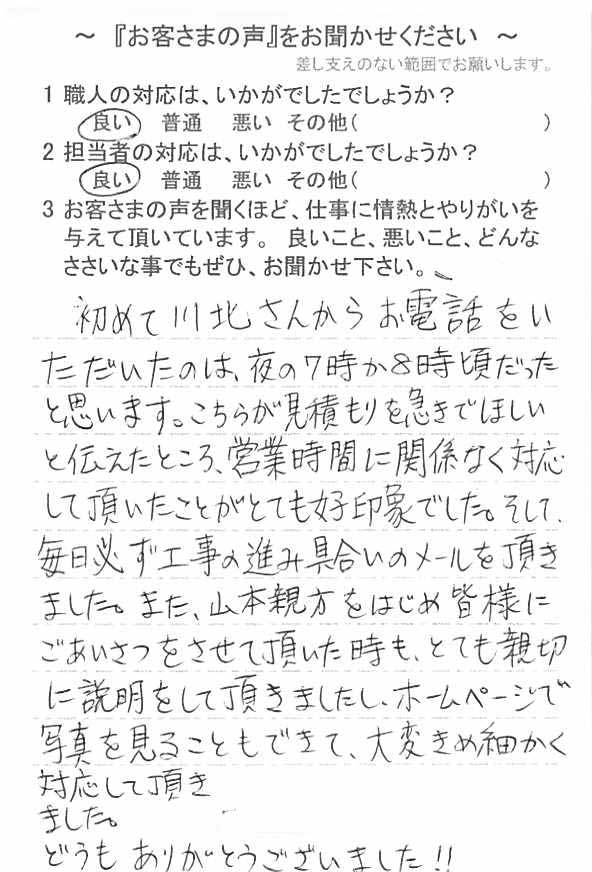 ～ 『お客さまの声』をお聞かせください ～
差し支えのない範囲でお願いします。
1 職人の対応は、いかがでしたでしょうか？
良い 普通 悪い その他( )
2 担当者の対応は、いかがでしたでしょうか？
良い 普通 悪い その他( )
3 お客さまの声を聞くほど、仕事に情熱とやりがいを
与えて頂いています。 良いこと、悪いこと、どんな
ささいな事でもぜひ、お聞かせ下さい。
初めて川北さんからお電話をい
ただいたのは、夜の7時か8時頃だった
と思います。こちらが見積もりを急きでほしい
と伝えたところ、営業時間に関係なく対応
して頂いたことがとても好印象でした。そして、
毎日必ず工事の進み具合いのメールを頂き
ました。また、山本親方をはじめ皆様に
ごあいさつをさせて頂いた時も、とても親切
に説明をして頂きましたし、ホームページで
写真を見ることもできて、大変きめ細かく
対応して頂き
ました。
どうもありがとうございました!!